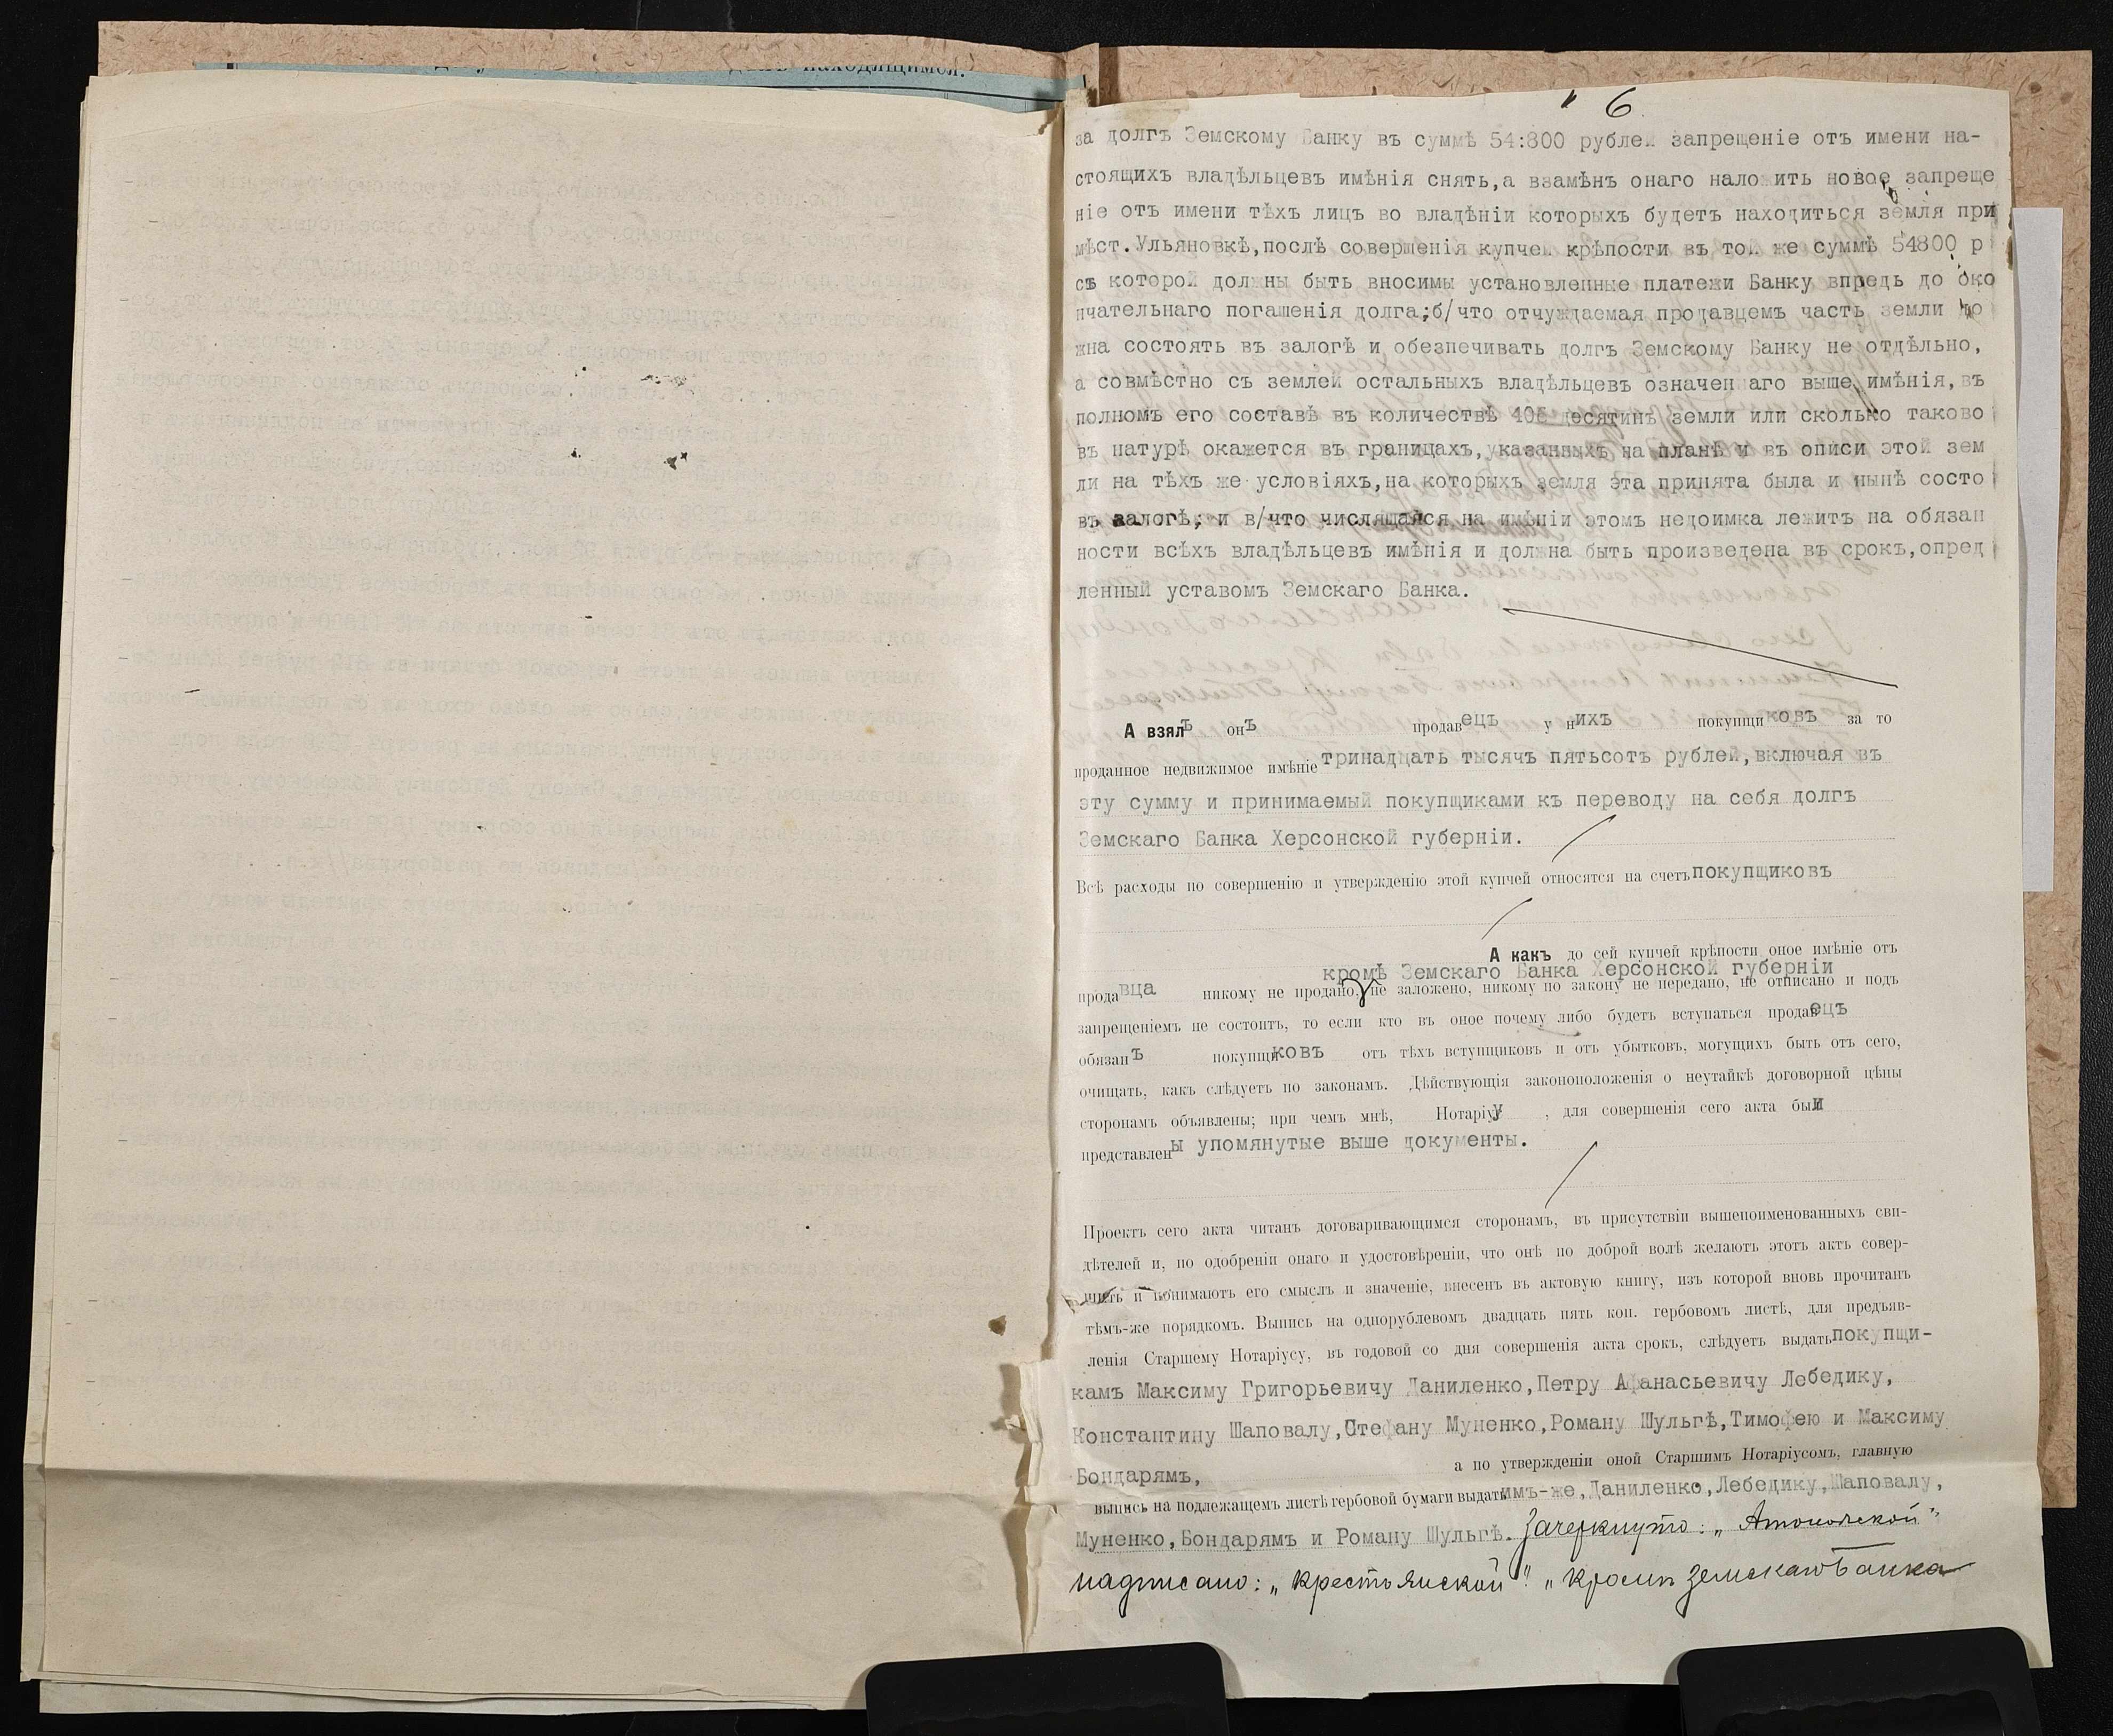 находящимся.
" 6
за долгъ Земскому Банку въ суммѣ 54:800 рублей запрещеніе отъ имени на-
стоящихъ владѣльцевъ имѣнія снять,а взамѣнъ онаго наложить новое запреще
ніе отъ имени тѣхъ лицъ во владѣніи которыхъ будетъ находиться земля при
мѣст.Ульяновкѣ,послѣ совершенія купчей крѣпости въ той же суммѣ 54800 р
съ которой должны быть вносимы установленные платежи Банку впредь до око
нчательнаго погашенія долга;б/что отчуждаемая продавцемъ часть земли до
жна состоять въ залогѣ и обезпечивать долгъ Земскому Банку не отдѣльно,
а совмѣстно съ землей остальныхъ владѣльцевъ означеннаго выше имѣнія,въ
полномъ его составѣ въ количествѣ десятинъ земли или сколько таково
въ натурѣ окажется въ границахъ,указанныхъ на планѣ и въ описи этой зем
ли на тѣхъ же условіяхъ,на которыхъ земля эта принята была и нынѣ состо
въ залогѣ; и в/что числящаяся на имѣніи этомъ недоимка лежитъ на обязан
ности всѣхъ владѣльцевъ имѣнія и должна быть произведена въ срокъ,опред
ленный уставомъ Земскаго Банка.
А взялъ онъ продавецъ у нихъ покупщиковъ за то
проданное недвижимое имѣніе тринадцать тысячъ пятьсотъ рублей,включая въ
эту сумму и принимаемый покупщиками къ переводу на себя долгъ
Земскаго Банка Херсонской губерніи.
Всѣ расходы по совершенію и утвержденію этой купчей относятся на счетъ покупщиковъ
А какъ до сей купчей крѣпости оное имѣніе отъ
кромѣ Земскаго Банка Херсонской губерніи
продавца никому не продано, не заложено, никому по закону не передано, не отписано и подъ
запрещеніемъ не состоитъ, то если кто въ оное почему либо будетъ вступаться продавецъ
обязанъ покупщиковъ отъ тѣхъ вступщиковъ и отъ убытковъ, могущихъ быть отъ сего,
очищать, какъ слѣдуетъ по законамъ. Дѣйствующія законоположенія о неутайкѣ договорной цѣны
сторонамъ объявлены; при чемъ мнѣ, Нотаріусу, для совершенія сего акта были
представлены упомянутые выше документы.
Проектъ сего акта читанъ договаривающимся сторонамъ, въ присутствіи вышепоименованныхъ сви-
дѣтелей и, по одобреніи онаго и удостовѣреніи, что онѣ по доброй волѣ желаютъ этотъ актъ совер-
шить и понимаютъ его смыслъ и значеніе, внесенъ въ актовую книгу, изъ которой вновь прочитанъ
тѣмъ-же порядкомъ. Выпись на однорублевомъ двадцать пять коп. гербовомъ листѣ, для предъяв-
ленія Старшему Нотаріусу, въ годовой со дня совершенія акта срокъ, слѣдуетъ выдать покупщи-
камъ Максиму Григорьевичу Даниленко,Петру Афанасьевичу Лебедику,
Константину Шаповалу,Стефану Муненко,Роману Шульгѣ,Тимофею и Максиму
Бондарямъ, а по утвержденіи оной Старшимъ Нотаріусомъ, главную
выпись на подлежащемъ листѣ гербовой бумаги выдать имъ-же,Даниленко,Лебедику,Шаповалу,
Муненко,Бондарямъ и Роману Шульгѣ. Зачеркнуто: „
надписано: „крестьянской" „кромѣ Земскаго Банка